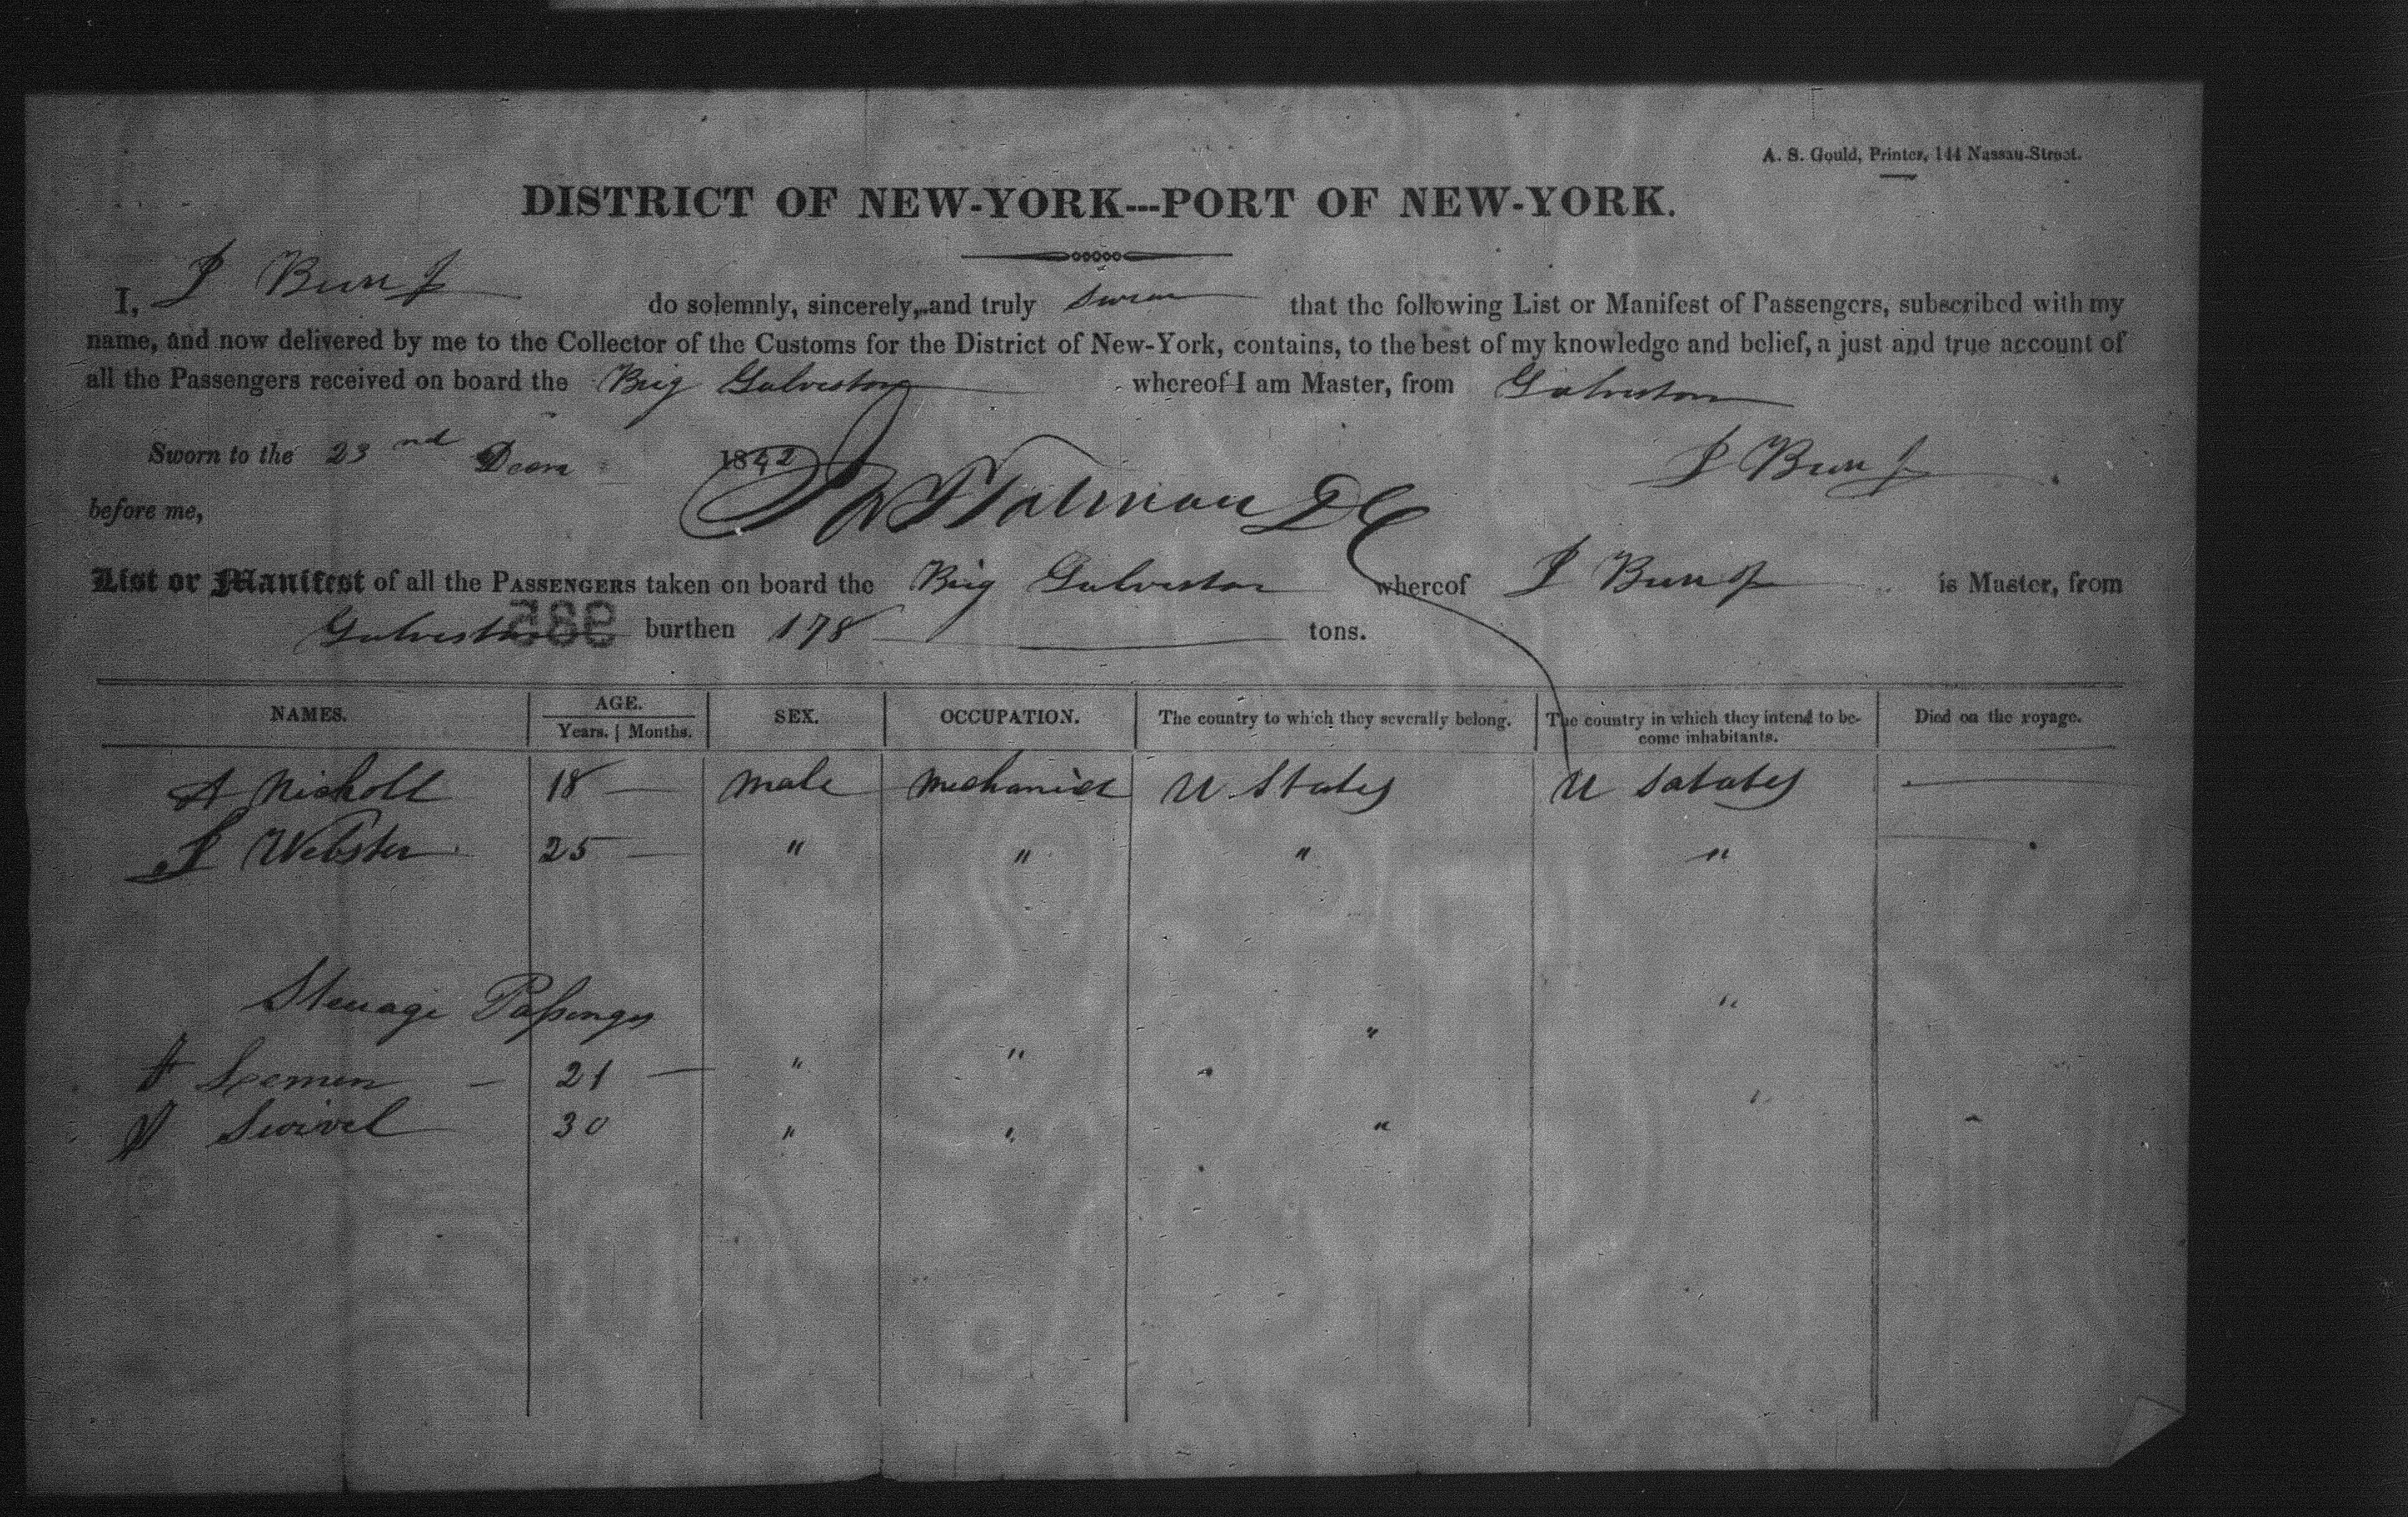 A. S. Gould, Printer, 144 Nassau-Street.
DISTRICT OF NEW-YORK---PORT OF NEW-YORK.
I, do solemnly, sincerely, and truly swear that the following List or Manifest of Passengers, subscribed with my
name, and now delivered by me to the Collector of the Customs for the District of New-York, contains, to the best of my knowledge and belief, a just and true account of
all the Passengers received on board the Brig Galveston whereof I am Master, from Galveston
Sworn to the 23 nd Decm 1842
before me,
List or Manifest of all the PASSENGERS taken on board the Brig Galveston whereof is Master, from
Galveston burthen 178 tons.
NAMES. AGE. SEX. OCCUPATION. The country to which they severally belong. The country in which they intend to be- Died on the voyage.
Years. Months. come inhabitants.
A Nicholl 18 — male mechanick U States U Satates —
J Webster 25 — " " " " —
Steerage Passengers "
21 — " " "
Swivel 30 " " "